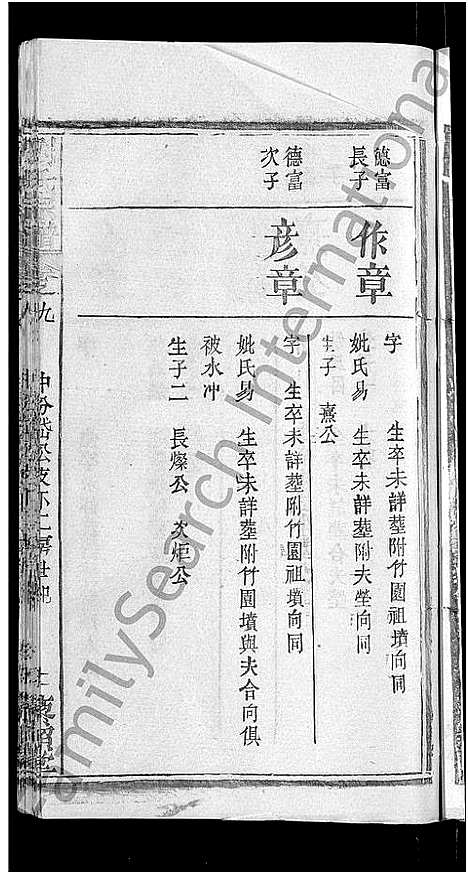 德富
長子
作章
字 生卒未詳塟附竹園祖墳向同
妣氏易 生卒未詳塟附夫塋向同
生子 熹公
德富
次子
彦章
字 生卒未詳塟附竹園祖墳向同
妣氏易 生卒未詳塟附竹園墳與夫合向俱
被水冲
生子二 長燦公 次炬公
氏宗譜
卷之九
房世紀
FamilySearch International